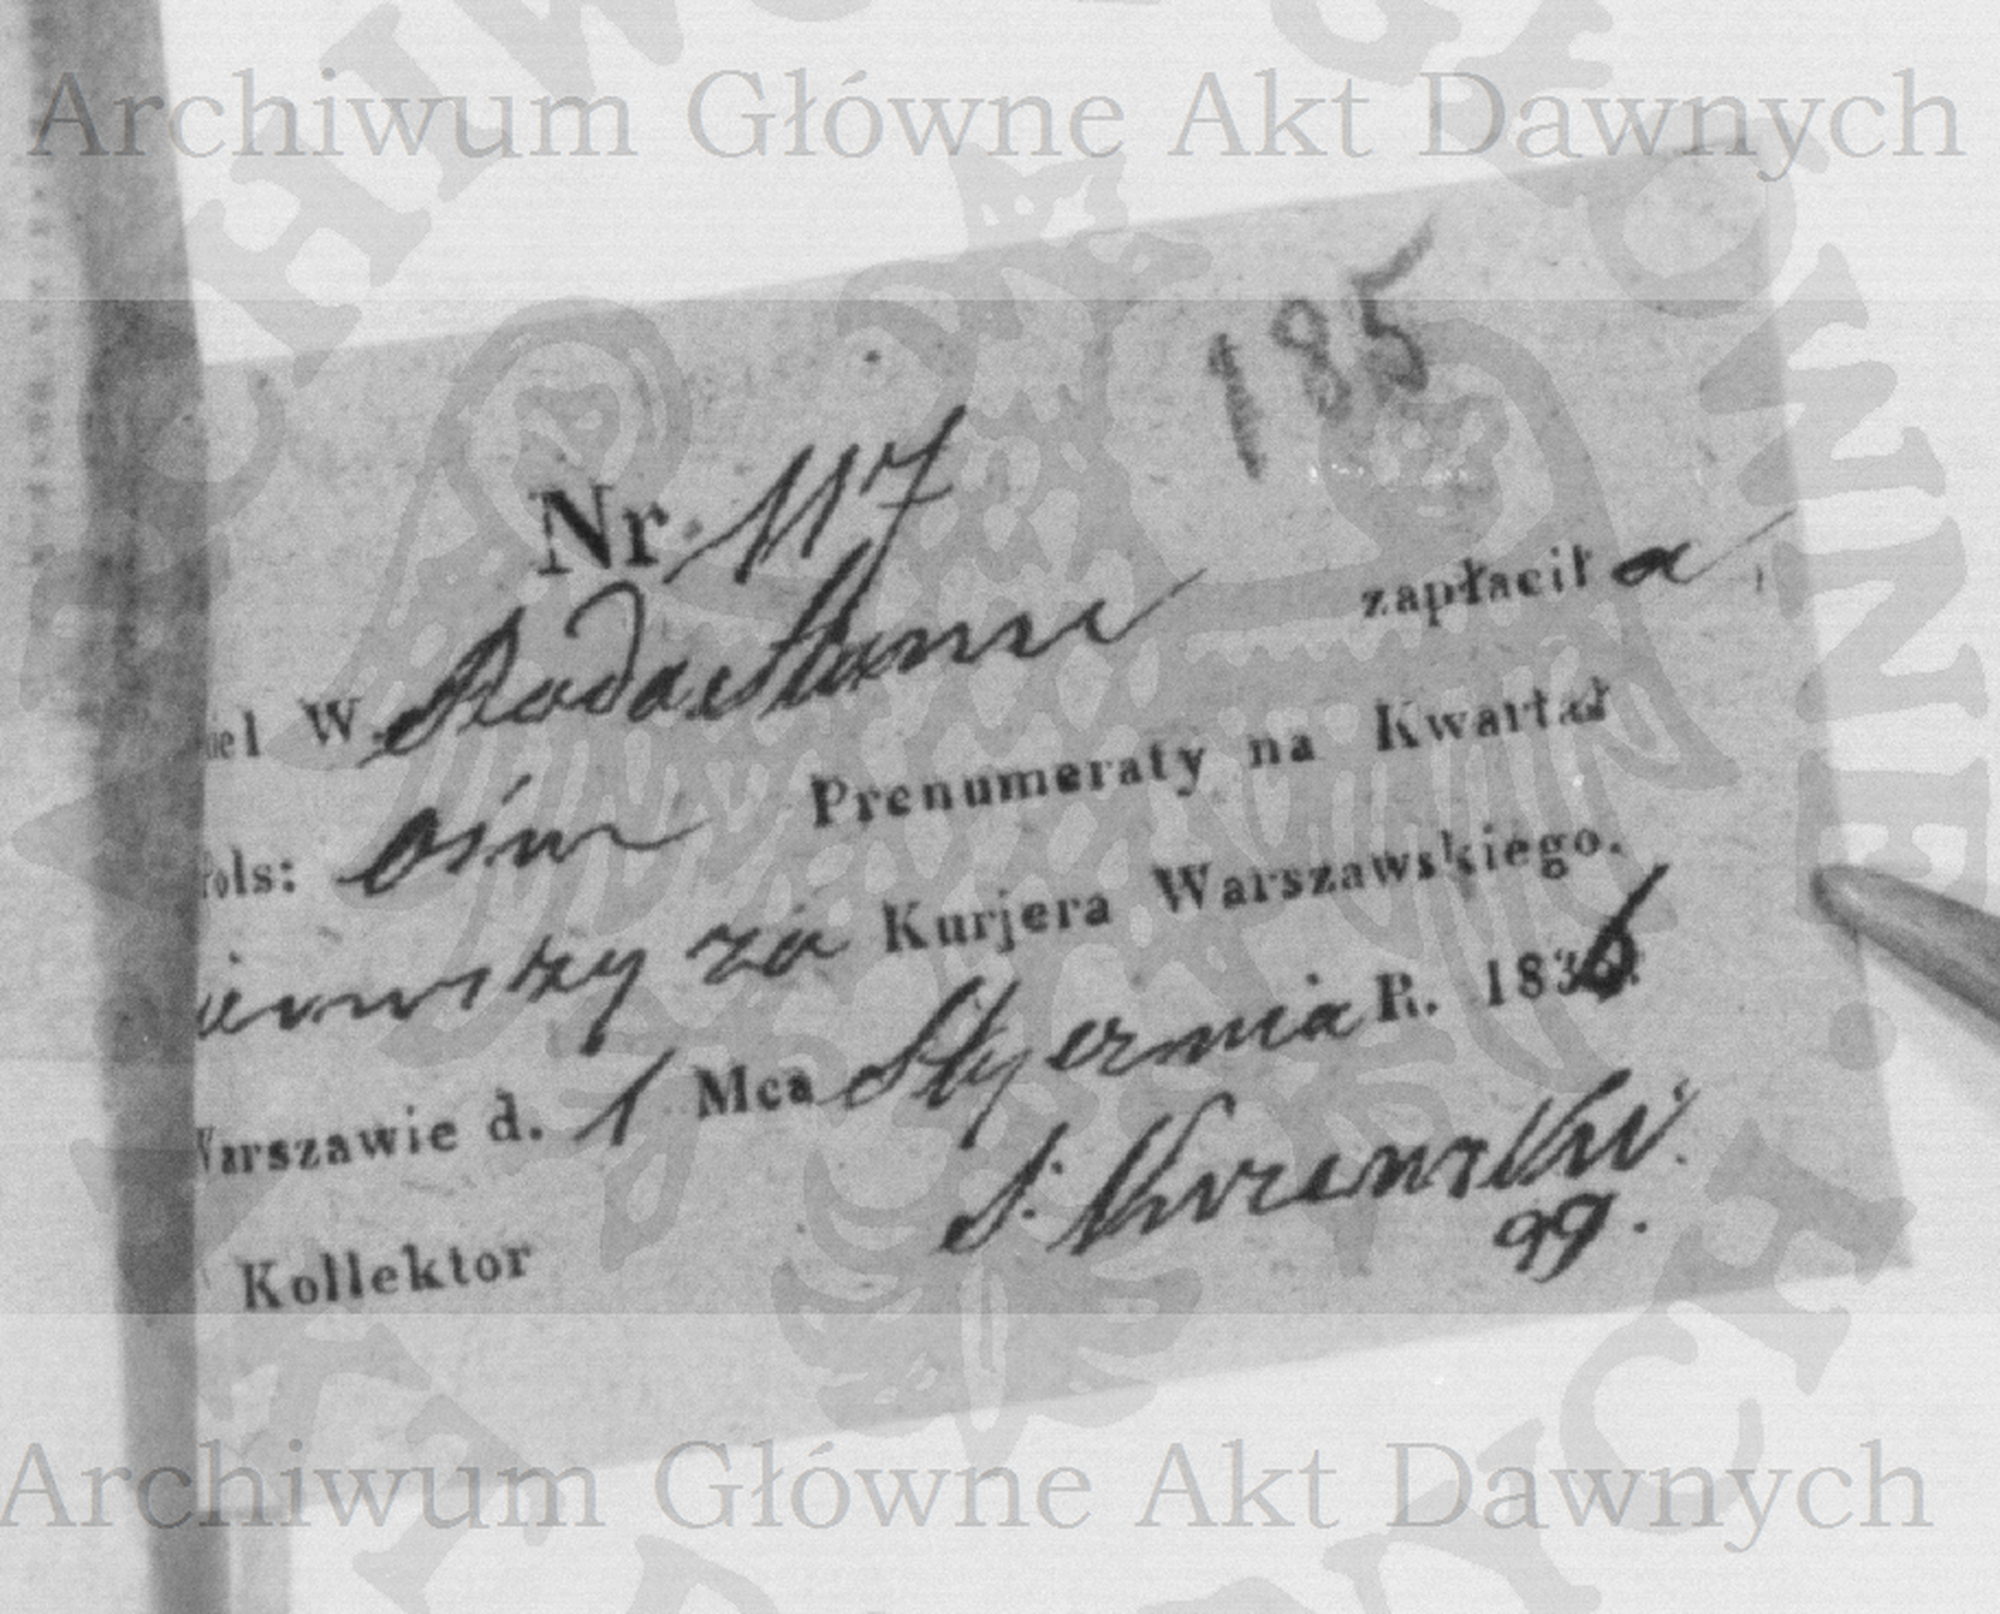 Archiwum Główne Akt Dawnych
185
Nr. 117
iel W. zapłacił a
ols: ośm Prenumeraty na Kwartał
ierwszy za Kurjera Warszawskiego.
Warszawie d. 1 Mca Stycznia R. 1836.
Kollektor S.
99.
Archiwum Główne Akt Dawnych